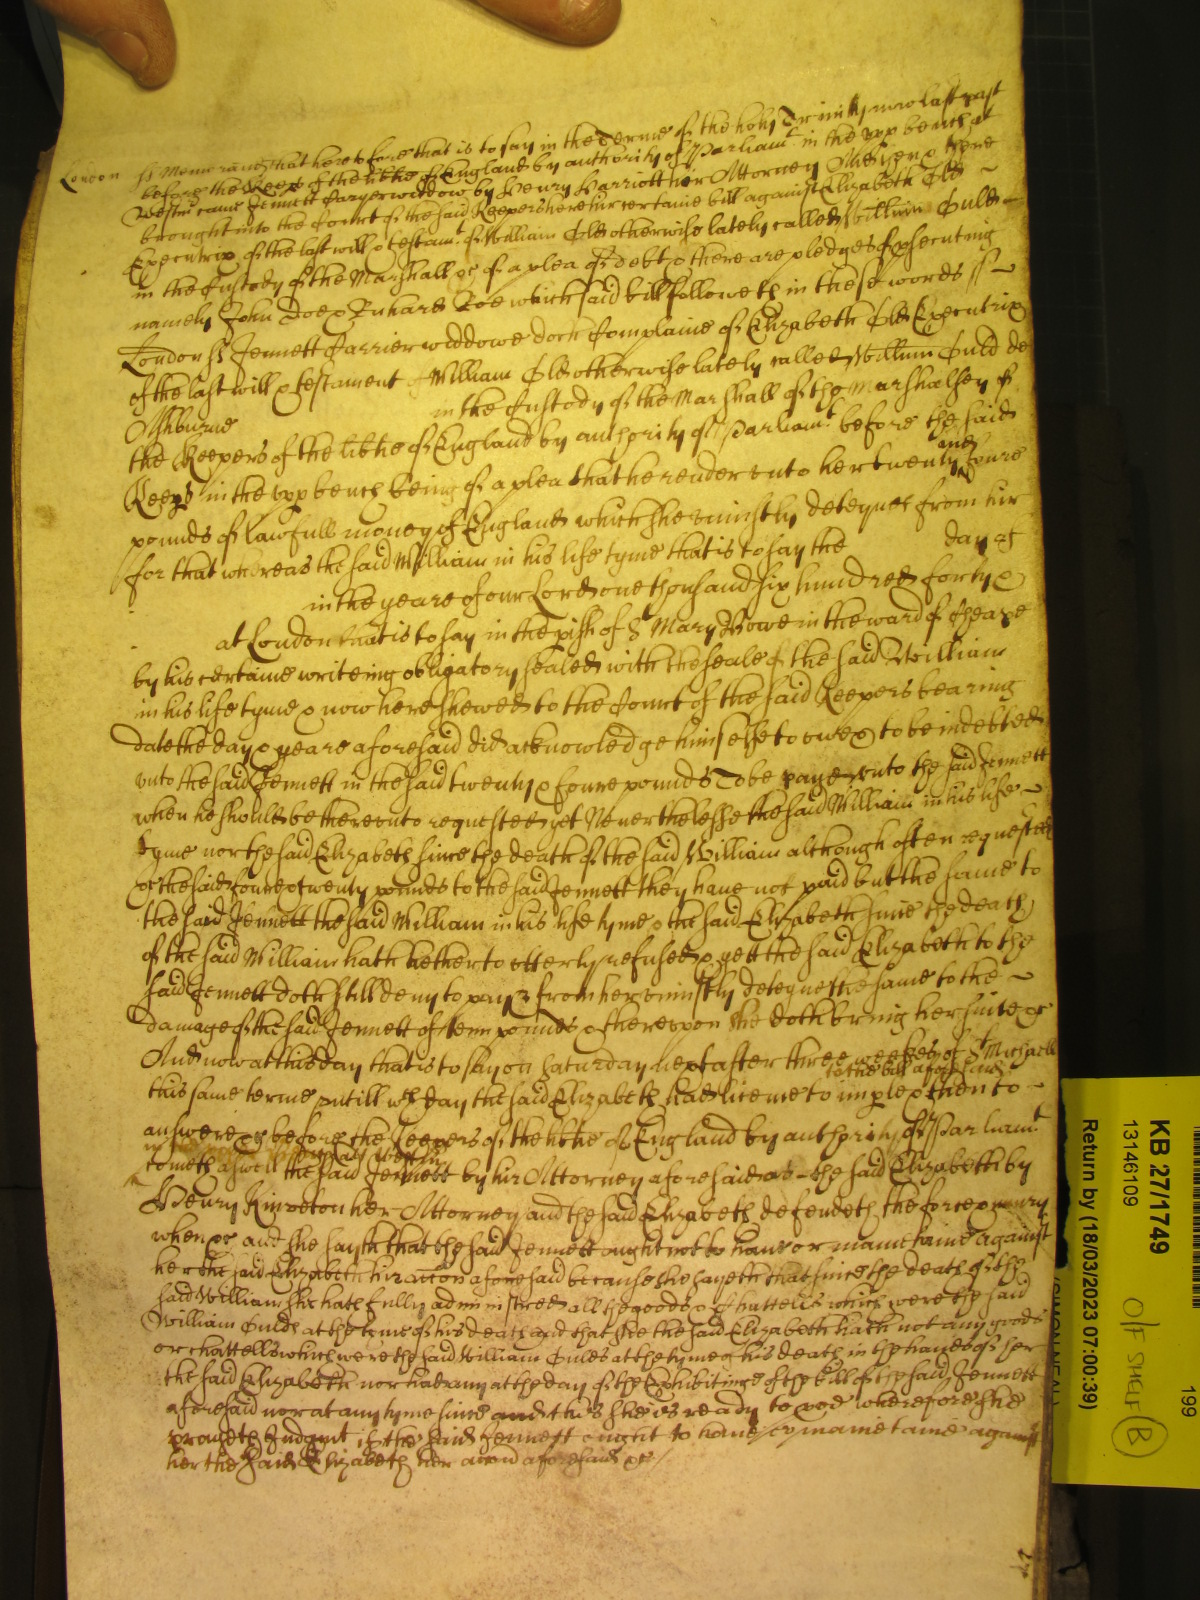 London ss Memorand that heretofore that is to say in the Terme of the holy Trinity now last past
before the Keeps of the libtie of England by authority of Parliamt in the vpp bench at
Westm came Jennett Farryer widdow by Henry Harriott her Attorney & then & there
brought into the Court of the said Keepers here hir certaine bill against Elizabeth Old
Executrix of the last will & testamt of William Old otherwise lately called William Ould
in the Custody of the Marshall &c of a plea of debt & there are pledges of psecuting
namely John Doe & Richard Roe which said bill followeth in these words ss
London ss Jennett Farrier widdowe doth Complaine of Elizabeth Old Executrix
of the last will & testament of William Old otherwise lately called William Ould de
Ashburne in the Custody of the Marshall of the Marshalsey of
the Keepers of the libtie of England by authority of Parliamt before the said
Keeps in the vpp bench being of a plea that he render vnto her twenty and foure
pounds of lawfull money of England which she vniustly deteynes from hir
for that whereas the said William in his life tyme that is to say the day of
in the yeare of our Lord one thousand six hundred forty &
at London that is to say in the pish of St Mary Bowe in the ward of Cheape
by his certaine writeing obligatory sealed with the seale of the said William
in his life tyme & now here shewed to the Court of the said Keepers bearing
date the day & yeare aforesaid did acknowledge himselfe to owe & to be indebted
vnto the said Jennett in the said twenty & foure pounds To be payd vnto the said Jennett
when he should be therevnto requested yet Neverthelesse the said William in his life
tyme nor the said Elizabeth since the death of the said William although often requested
&c the said foure & twenty pounds to the said Jennett they have not paid but the same to
the said Jennett the said William in his life tyme & the said Elizabeth since the death
of the said William hath hetherto vtterly refused & yett the said Elizabeth to the
said Jennett doth still deny to pay & from her vniustly deteyne the same to the
damage of the said Jennett of tenn pounds & therevpon she doth bring her suite &c
And now at this day that is to say on Saturday next after three weekes of St Michaell
this same terme vntill wch day the said Elizabeth had licence to imple to the bill aforesaid & then to
answere &c before the Keepers of the libtie of England by authority of Parliamt
cometh aswell the said Jennett by hir Attorney aforesaid as the said Elizabeth by
Henry Kinveton her Attorney and the said Elizabeth defendeth the force & iniury
when &c and she saith that the said Jennett ought not to have or maintaine against
her the said Elizabeth hir accon aforesaid because she sayeth that since the death of the
said William she hath fully administred all the goods & Chattells which were the said
William Oulds at the tyme of his death and that she the said Elizabeth hath not any goods
or chattells which were the said William Oulds at the tyme of his death in the hands of her
the said Elizabeth nor had any at the day of the Exhibiting of the bill of the said Jennett
aforesaid nor at any tyme since and this she is ready to wherefore she
prayeth Iudgmt if the said Jennett ought to have or maintaine against
her the said Elizabeth her accon aforesaid &c
KB 27/1749
13146109
Return by (18/03/2023 07:00:39)
199
O/F SHELF
B